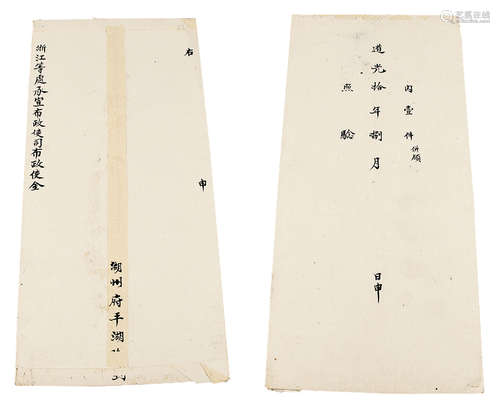 右
申
浙江等處承宣布政使司布政使全
湖州府平湖
內壹件 併顧
道光拾年捌月
日申
照驗